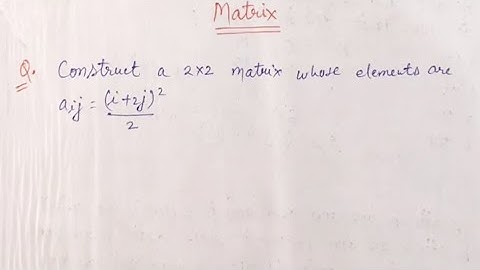 Matrix
Q. Construct a 2x2 matrix whose elements are
aij = (i+2j)² / 2